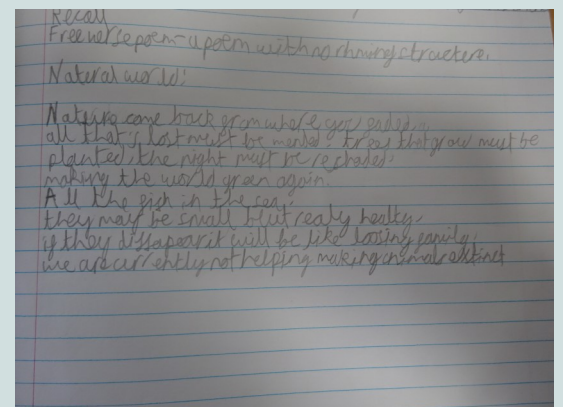 Recall
Free verse poem - a poem with no rhyming structure.
Natural world:
Nature come back from where you ended,
all that's lost must be mended. trees that grow must be
planted, the night must be
making the world green again.
All the fish in the sea,
they may be small but realy healty,
if they dissapear it will be like loosing family,
we are currently not helping making animals extinct